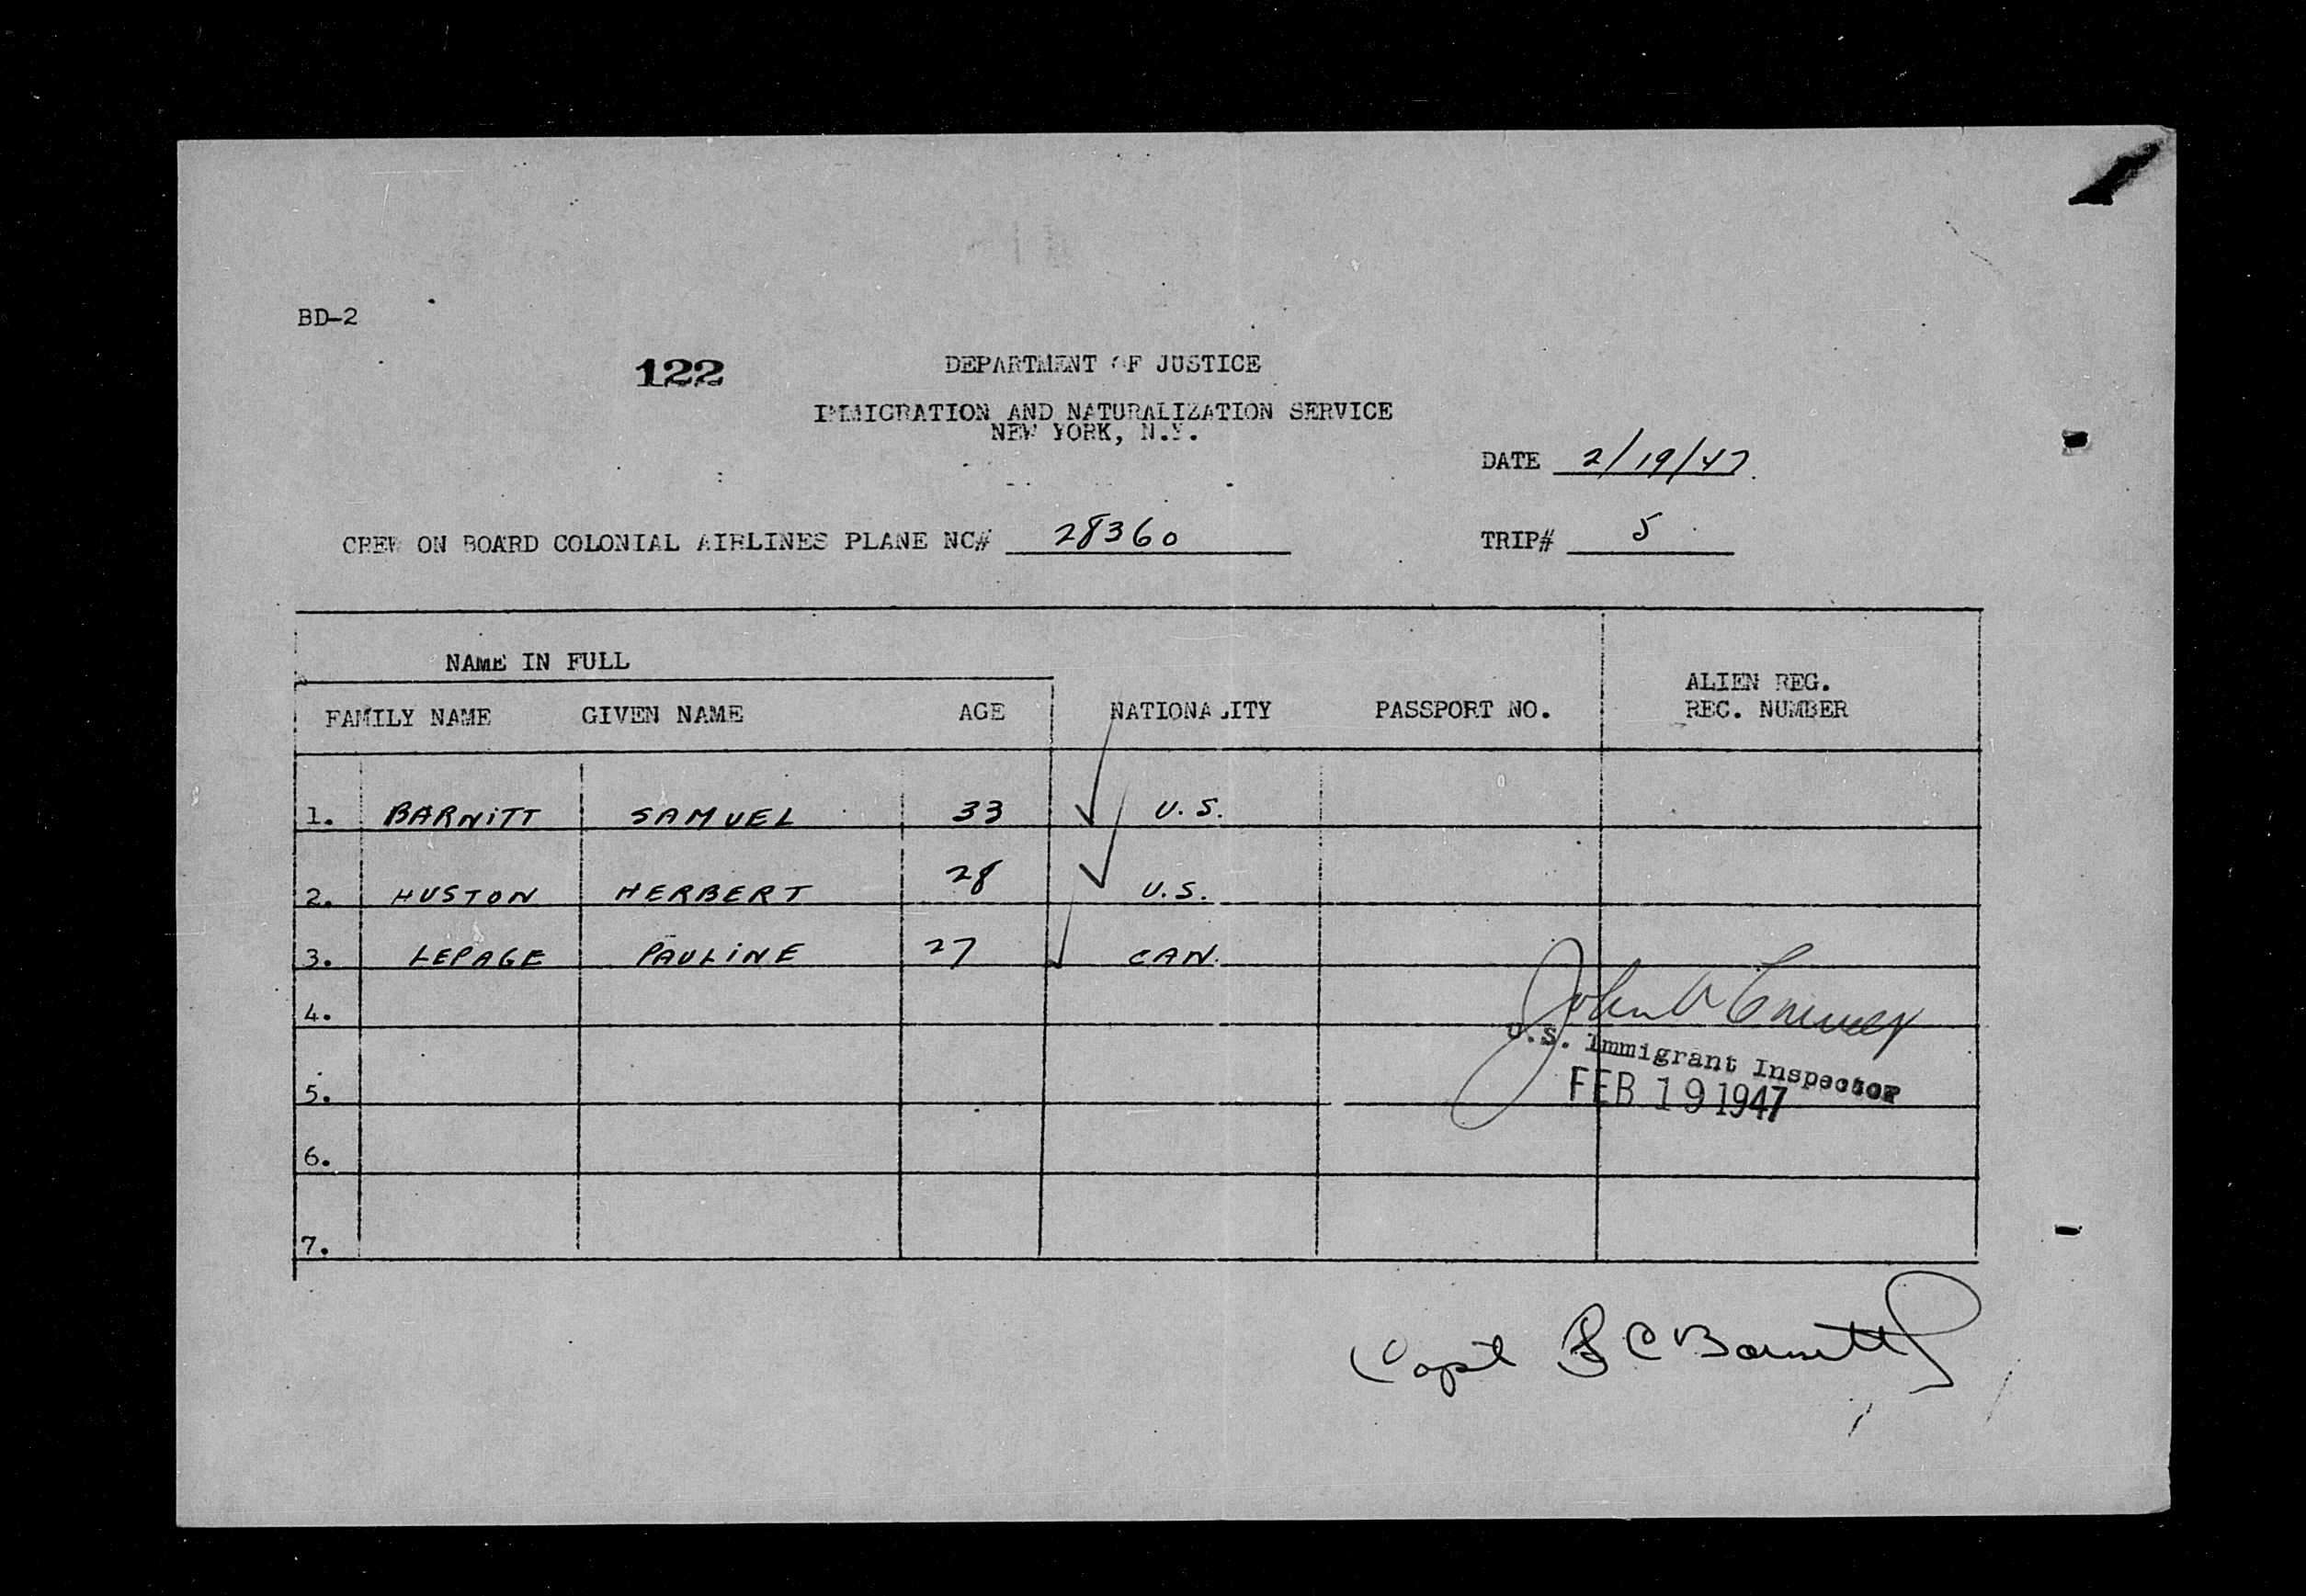 BD-2
122
DEPARTMENT OF JUSTICE
IMMIGRATION AND NATURALIZATION SERVICE
NEW YORK, N.Y.
DATE 2/19/47.
CREW ON BOARD COLONIAL AIRLINES PLANE NC# 28360 TRIP# 5
NAME IN FULL
FAMILY NAME GIVEN NAME AGE NATIONALITY PASSPORT NO. ALIEN REG. REC. NUMBER
1. BARNITT SAMUEL 33 U.S.
2. HUSTON HERBERT 28 U.S.
3. LEPAGE PAULINE 27 CAN.
4.
John
U.S. Immigrant Inspector
FEB 19 1947
5.
6.
7.
Capt S C Barnitt